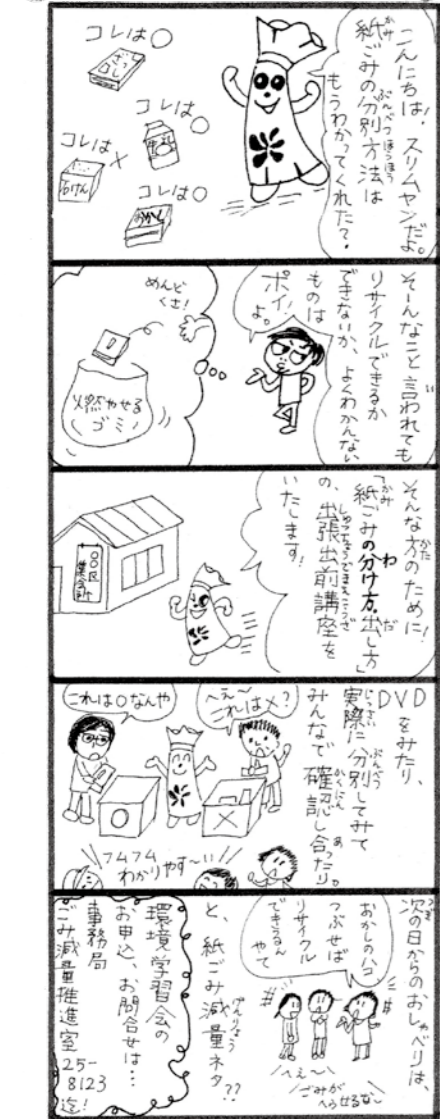 こんにちは!スリムヤンだよ。
紙ごみの分別方法は
もうわかってくれた?
コレは○
ざっし
コレは○
牛乳
コレは×
石けん
コレは○
おかし
そーんなこと言われても
リサイクルできるか
できないか、よくわかんない
ものは
ポイ!
よ。
めんど
くさ!
燃やせる
ゴミ
そんな方のために!
「紙ごみの分け方、出し方」
の、出張出前講座を
いたします!
○○区
集会所
DVDをみたり、
実際に分別してみて
みんなで確認し合ったり。
へえ~
これは×?
これは○なんや
○
×
フムフム
わかりやす~い
次の日からのおしゃべりは、
おかしのハコ
つぶせば
リサイクル
できるんやて
へえ~
ごみが
へらせるな~
と、紙ごみ減量ネタ??
環境学習会の
お申込、お問合せは…
事務局
ごみ減量推進室
25-
8123
迄!